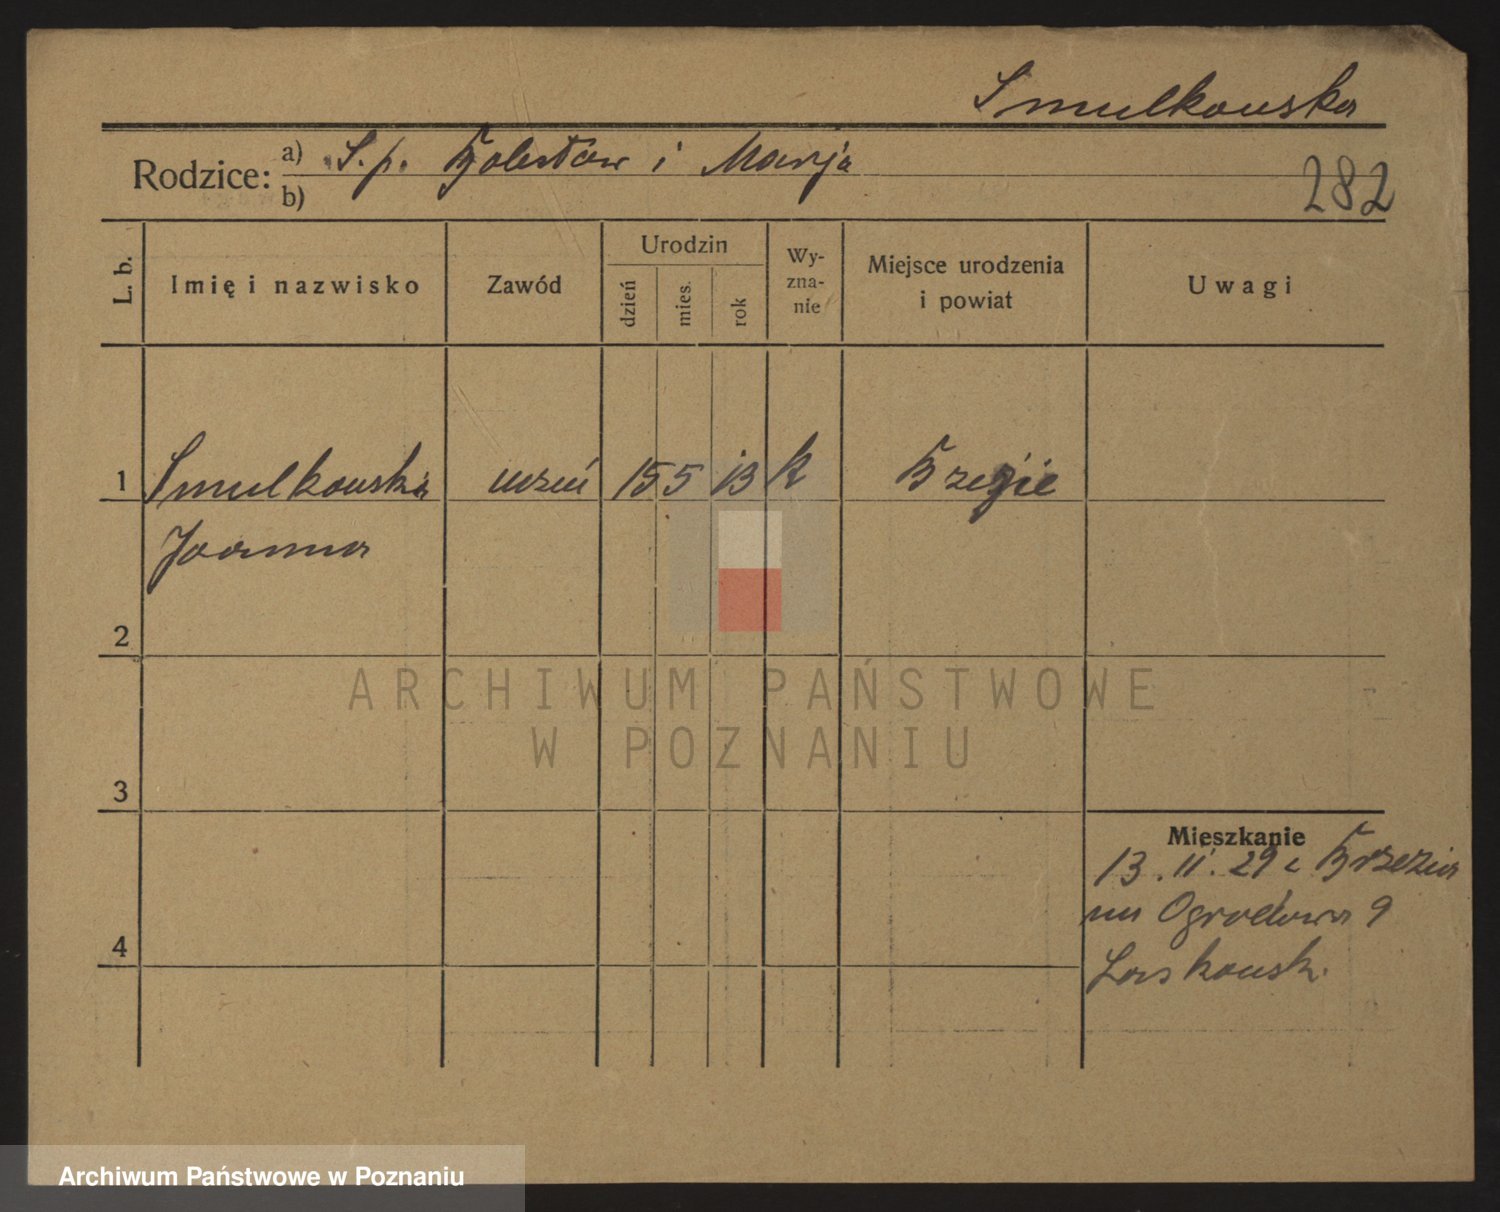 Smulkowska
Rodzice: a) Ś.p. Bolesław i Marja
b)
282
L. b.
Imię i nazwisko
Zawód
Urodzin
dzień
mies.
rok
Wy-
zna-
nie
Miejsce urodzenia
i powiat
Uwagi
1 Smulkowska uczeń 15 5 13 k
Joanna
2
3
4
Mieszkanie
13. 11. 29 z
na Ogrodowa 9
Laskowsk.
ARCHIWUM PAŃSTWOWE
W POZNANIU
Archiwum Państwowe w Poznaniu